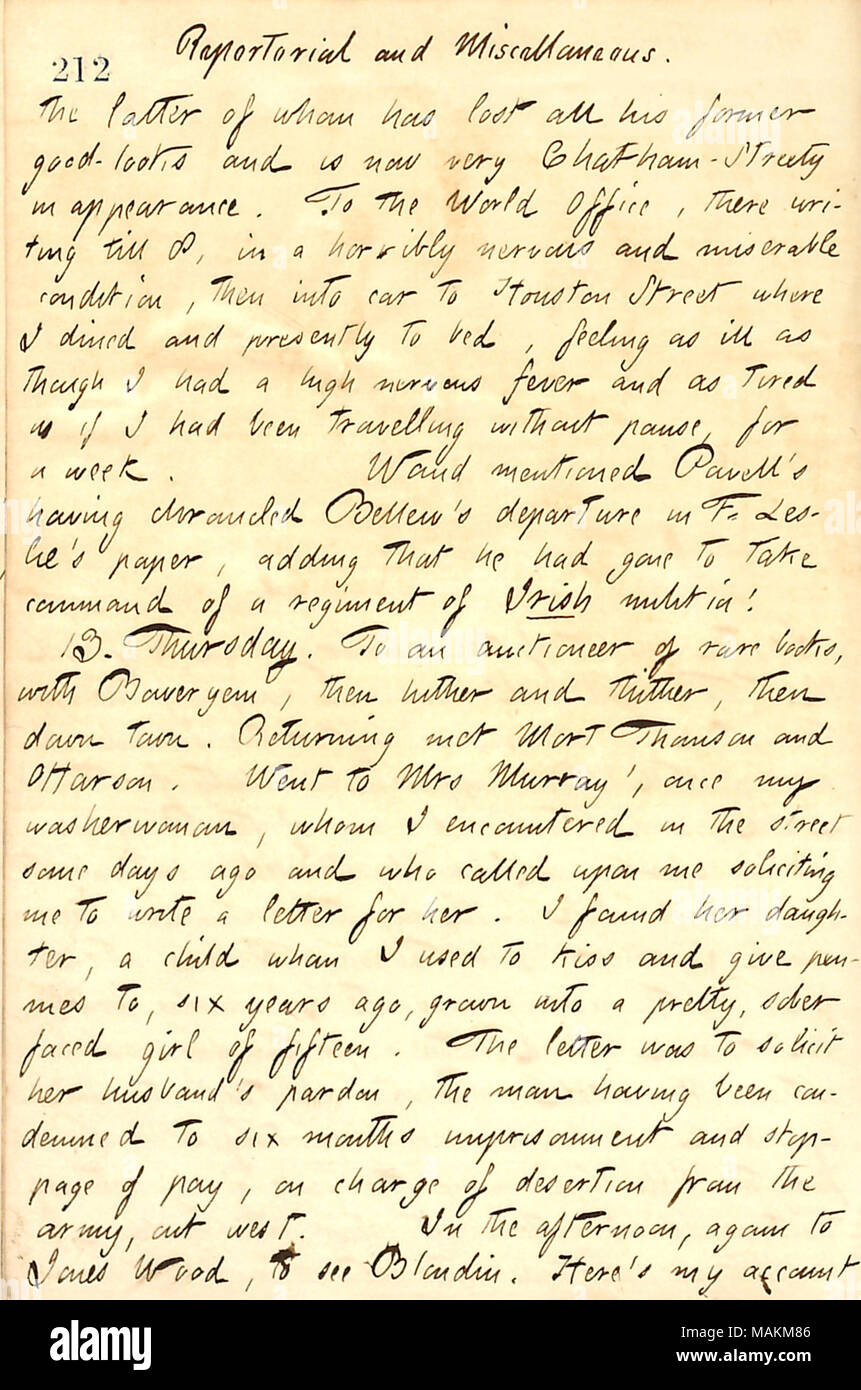 Reportorial and Miscellaneous.
212
the latter of whom has lost all his former
good-looks and is now very Chatham-Streety
in appearance. To the World Office, there wri-
ting till 8, in a horribly nervous and miserable
condition, then into car to Houston Street where
I dined and presently to bed, feeling as ill as
though I had a high nervous fever and as tired
as if I had been travelling without pause, for
a week. Waud mentioned Powell's
having chronicled Bellew's departure in F. Les-
lie's paper, adding that he had gone to take
command of a regiment of Irish militia!
13. Thursday. To an auctioneer of rare books,
with Boweryem, then hither and thither, then
down town. Returning met Mort Thomson and
Harson. Went to Mrs Murray', once my
washerwoman, whom I encountered in the street
some days ago and who called upon me soliciting
me to write a letter for her. I found her daugh-
ter, a child whom I used to kiss and give pen-
nies to, six years ago, grown into a pretty, sober
faced girl of fifteen. The letter was to solicit
her husband's pardon, the man having been con-
demned to six months imprisonment and stop-
page of pay, on charge of desertion from the
army, out west. In the afternoon, again to
Jones Wood, to see Blondin. Here's my account
alamy
Image ID: MAKM86
www.alamy.com